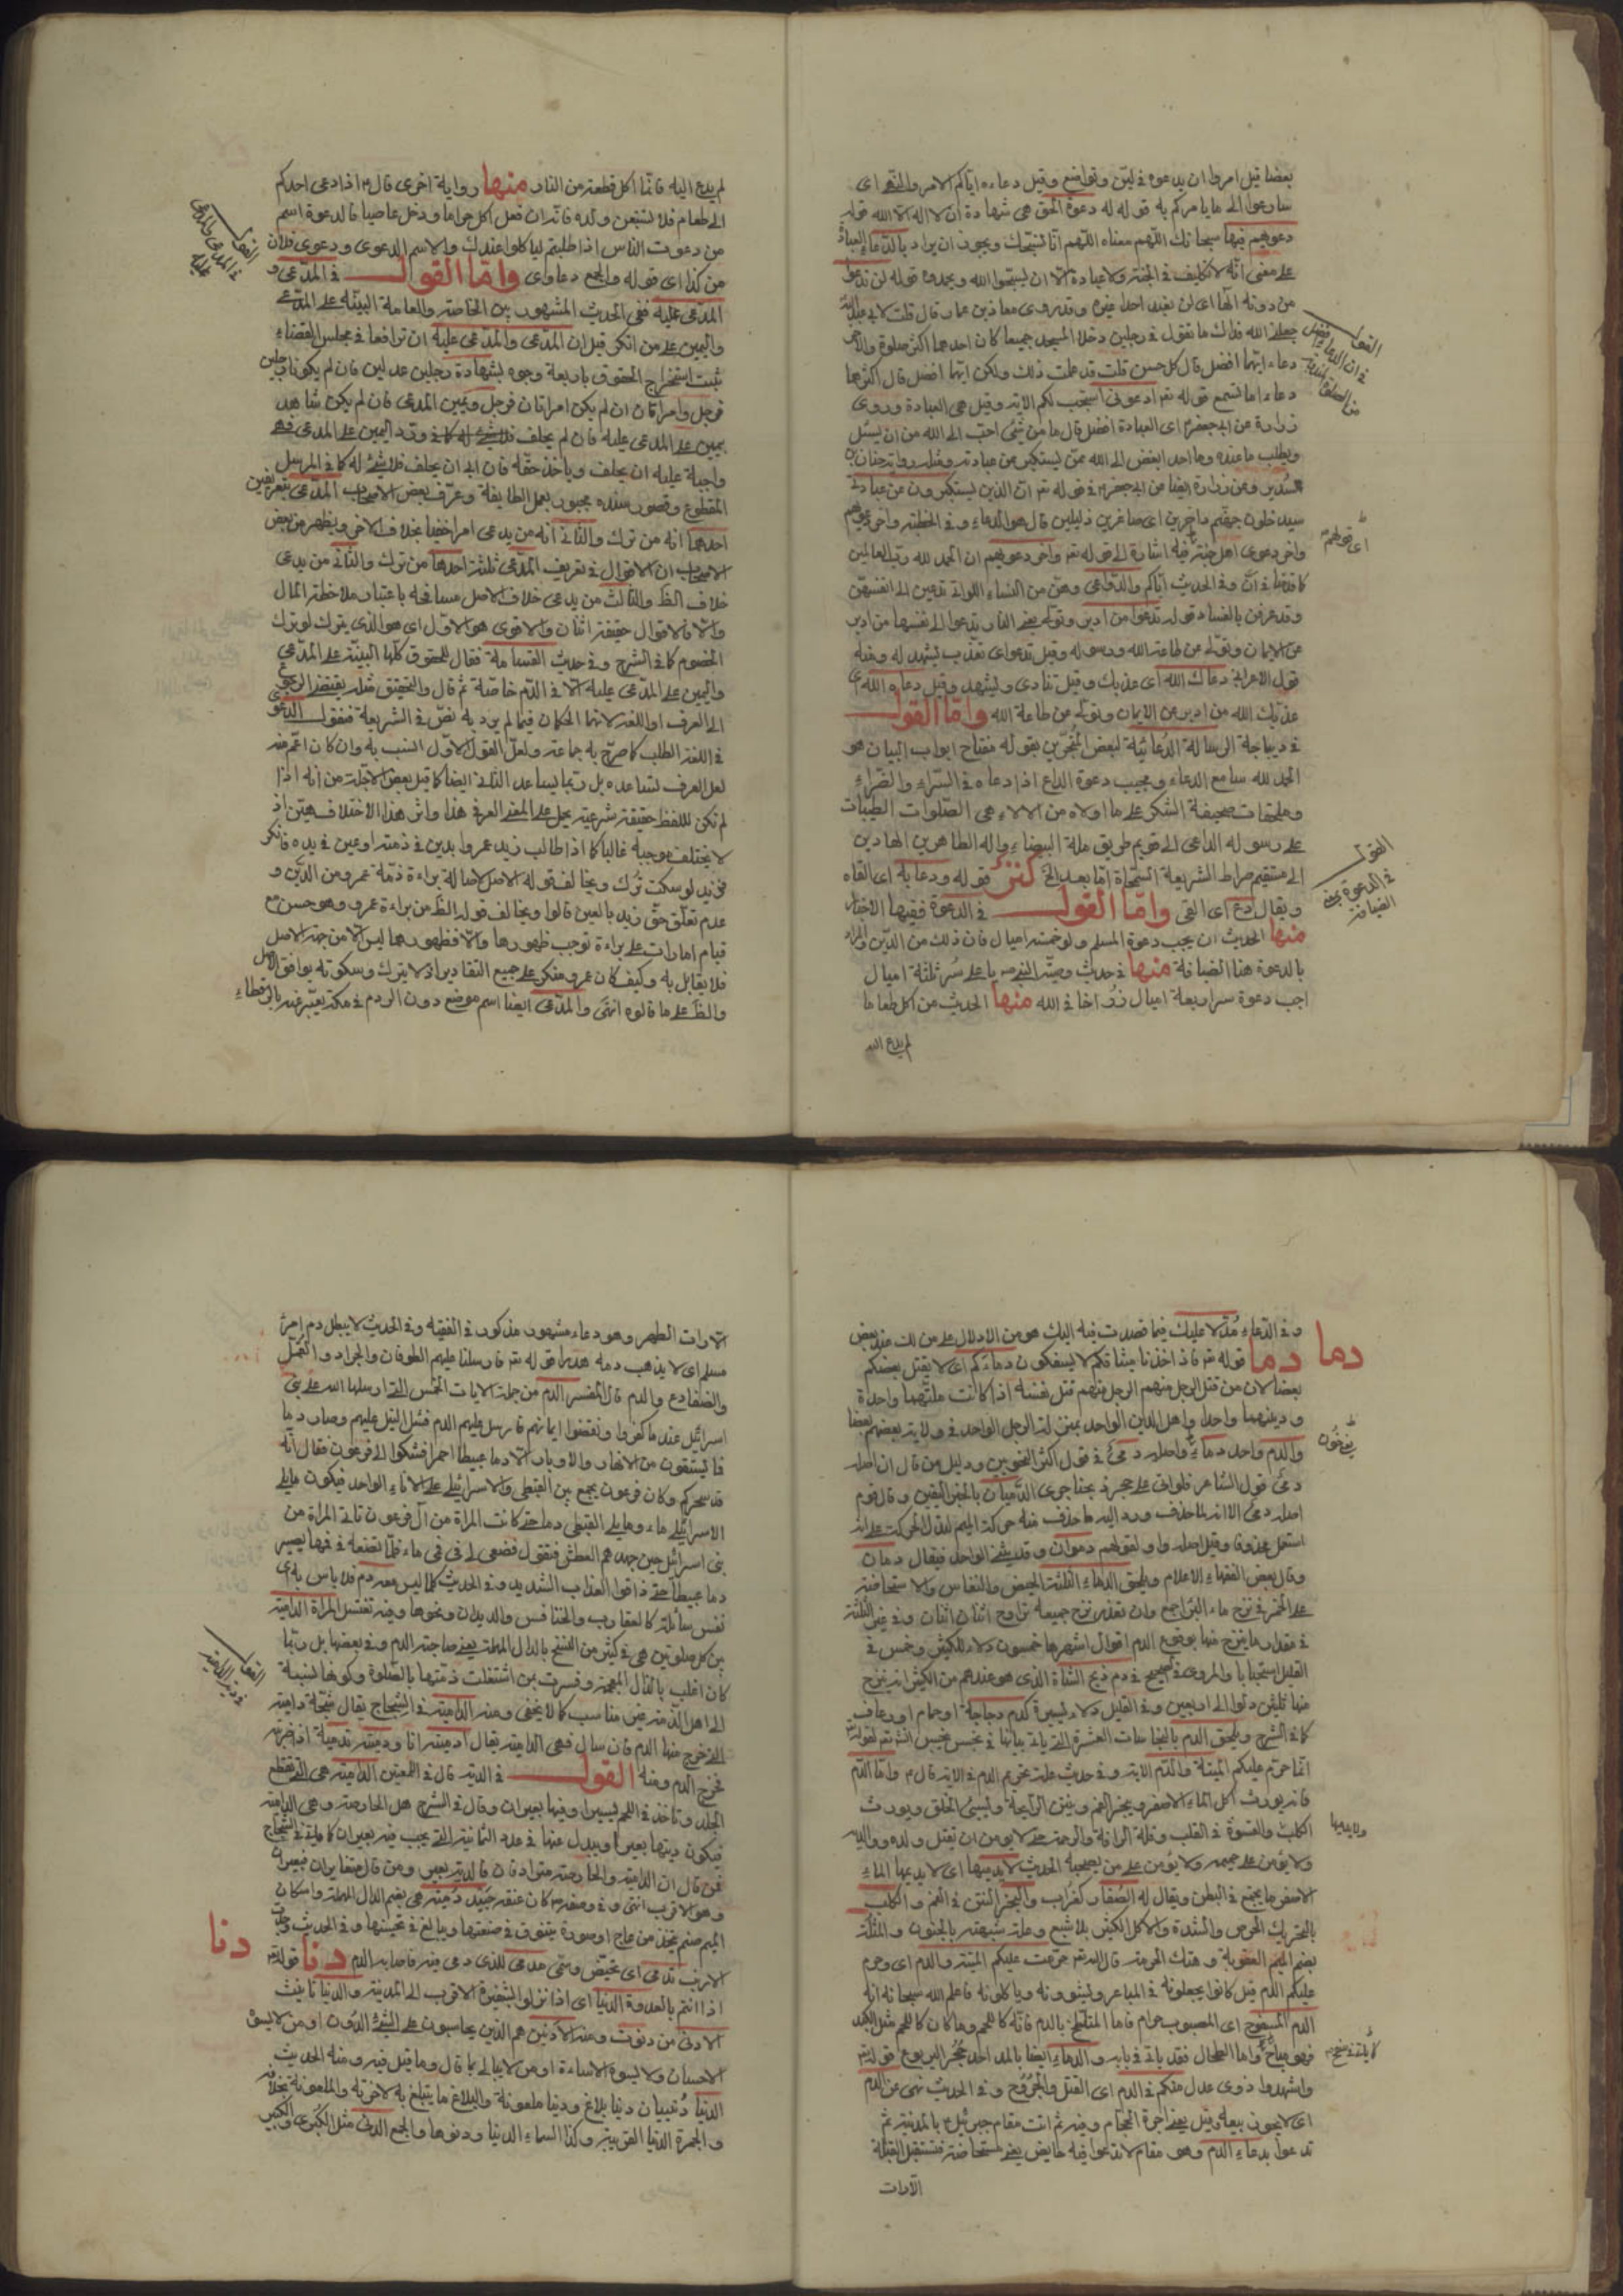 بعضا قيل امروا ان يدعوه في لين وتواضع وقيل دعاءه اياكم الامر والنهى اى
سارعوا الى ما يامركم به قوله له دعوة الحق هى شهادة ان لا اله الا الله قوله
دعويهم فيها سبحانك اللهم معناه اللهم انا نسبحك ويجوز ان يراد بالدعاء العبادة
على معنى انه لا تكليف في الجنة ولا عبادة الا ان يسبحوا الله ويحمدوه قوله لن ندعوا
من دونه الها اى لن نعبد احدا غيره وقد روى معاذ بن عمار قال قلت لابي عبد الله
جعلنى الله فداك ما تقول في رجلين دخلا المسجد جميعا كان احدهما اكثر صلوة والاخر
دعاء ايهما افضل قال كل حسن قلت قد علمت ذلك ولكن ايهما افضل قال اكثرهما
دعاء اما تسمع قوله تعم ادعونى استجب لكم الاية وقيل هى العبادة وروى
زرارة عن ابى جعفر اى العبادة افضل قال ما من شئ احب الى الله من ان يسئل
ويطلب ما عنده وما احد ابغض الى الله ممن يستكبر عن عبادته ومثله رواية حنان بن
السدير وعن زرارة ايضا عن ابى جعفر في قوله تعم ان الذين يستكبرون عن عبادتى
سيدخلون جهنم داخرين اى صاغرين ذليلين قال هو الدعاء وفي الخطبة واخر دعويهم
واخر دعوى اهل جنته فيه اشارة الى قوله تعم واخر دعويهم ان الحمد لله رب العالمين
كما قلنا في ان وفي الحديث اياكم والدواعى وهن من النساء اللواتى تدعين الى انفسهن
وقد عرفن بالفساد قوله تدعوا من ادبر وتولى يعنى النار تدعوا الى نفسها من ادبر
عن الايمان وتولى عن طاعة الله ورسوله وقيل تدعوا اى تعذب ليشهد له ومنه
قول الاعرابى دعاك الله اى عذبك وقيل تنادى وليشهد وقيل دعاه الله اى
عذبك الله من ادبر عن الايمان وتولى عن طاعة الله واما القول
في ديباجة الرسالة الدعائية لبعض المتبحرين بقوله مفتاح ابواب البيان هو
الحمد لله سامع الدعاء ومجيب دعوة الداع اذا دعاه في السراء والضراء
وملحقات صحيفة الشكر على ما اولاه من الالاء هى الصلوات الطيبات
على رسوله الداعى الى قويم طريق ملة البيضاء واله الطاهرين الهادين
الى مستقيم صراط الشريعة السمحاة اما بعد الخ كنز قوله ودعا به اى القاه
ويقال دع اى القى واما القول في الدعوة ففيها الاخبار
منها الحديث ان يجب دعوة المسلم ولو خمسة اميال فان ذلك من الدين والمراد
بالدعوة هنا الضيافة منها في حديث وصية النبى يا على سر ثلثة اميال
اجب دعوة سر اربعة اميال زر اخا في الله منها الحديث من اكل طعاما
لم يدع اليه
القول
في ان الدعاء افضل
من الصلوة
اى قولهم
القول
في الدعوة بمعنى
الضيافة
لم يدع اليه فانما اكل قطعة من النار منها رواية اخرى قال اذا دعى احدكم
الى طعام فلا يستتبعن ولده فانه ان فعل اكل حراما ودخل عاصيا فالدعوة اسم
من دعوت الناس اذا طلبتم ليأكلوا عندك والاسم الدعوى ودعوى فلان
من كذا اى قوله والجمع دعاوى واما القول في المدعى و
المدعى عليه ففى الحديث المشهور بين الخاصة والعامة البينة على المدعى
واليمين على من انكر قيل ان المدعى والمدعى عليه ان ترافعا في مجلس القضاء
ثبت استخراج الحقوق باربعة وجوه بشهادة رجلين عدلين فان لم يكونا رجلين
فرجل وامراتان ان لم يكن امراتان فرجل ويمين المدعى فان لم يكن شاهد
يمين على المدعى عليه فان لم يحلف فلا شئ له كما في ورد اليمين على المدعى فهى
واجبة عليه ان يحلف وياخذ حقه فان ابى ان يحلف فلا شئ له كما في المرسل
المقطوع وقصور سنده مجبور بعمل الطايفة وعرف بعض الاصحاب المدعى بتعريفين
احدهما انه من ترك والثانى انه من يدعى امرا خفيا بخلاف الاخر ويظهر من بعض
الاصحاب ان الاقوال في تعريف المدعى ثلثة احدها من ترك والثانى من يدعى
خلاف الظ والثالث من يدعى خلاف الاصل مسامحة باعتبار ملاحظة المال
والا فالاقوال حقيقة اثنان والاقوى هو الاول اى هو الذى يترك لو ترك
الخصوم كما في الشرح وفي حديث القسامة فقال الحقوق كلها البينة على المدعى
واليمين على المدعى عليه الا في الدم خاصة ثم قال والتحقيق مثله يقتضى الرجوع
الى العرف او اللغة لانهما الحكمان فيما لم يرد به نص في الشريعة فنقول الدعوى
في اللغة الطلب كما صرح به جماعة ولعل القول الاول انسب به وان كان اعم منه
لعل العرف لتساعده بل ربما يساعد الثانى ايضا كما قيل بعض الاجلة من انه اذا
لم تكن للفظ حقيقة شرعية يحمل على المعنى العرفى هذا واثر هذا الاختلاف هين اذ
لا يختلف موجبه غالبا كما اذا طالب زيد عمروا بدين في ذمته او عين في يده فانكر
فزيد لو سكت ترك ويخالف قوله الاصل لاصالة براءة ذمة عمرو من الدين و
عدم تعلق حق زيد بالعين قالوا ويخالف قوله الظ من براءة عمرو وهو حسن مع
قيام امارات على براءة توجب ظهورها والا فظهورهما ليس الا من جهة الاصل
فلا يقابل به وكيف كان عمرو منكر على جميع التقادير اذ لا يترك وسكوته يوافق الاصل
والظ على ما قالوه انتهى والمدعى ايضا اسم موضع دون الردم في مكة يعبر عنه بالرقطاء
القول
في المدعى والمدعى
عليه
دما
وفي الدعاء مدلا عليك فيما قصدت فيه اليك هو من الادلال على من لك عنده بعض
دما قوله تعم واذ اخذنا ميثاقكم لا تسفكون دماءكم اى لا يقتل بعضكم
بعضا لان من قتل الرجل منهم الرجل منهم قتل نفسه اذا كانت ملتهما واحدة
ودينهما واحدا واهل الدين الواحد بمنزلة الرجل الواحد في ولاية بعضهم بعضا
والدم واحد دماء واصله دمى في قول اكثر النحويين ودليل من قال ان اصله
دمى قول الشاعر فلو انا على حجر ذبحنا جرى الدميان بالخبر اليقين وقال قوم
اصله دمى الا انه لما حذف ورد اليه ما حذف منه حركت الميم لتدل الحركة على انه
استعمل محذوفا وقيل اصله واو لقولهم دموان وقد يثنى الواحد فيقال دمان
وقال بعض الفقهاء الاعلام ويلحق الدماء الثلثة الحيض والنفاس والاستحاضة
على الخمر في نزح ماء البئر اجمع وان تعذر نزح جميعه تراوح اثنان اثنان وفي غير الثلثة
في مقدار ما ينزح منها بوقوع الدم اقوال اشهرها خمسون دلاء للكثير وخمس في
القليل استحبابا والمروى في الصحيح في دم ذبح الشاة الذى هو عندهم من الكثير انه ينزح
منها ثلثين دلوا الى اربعين وفي القليل دلاء يسيرة كدم دجاجة او حمام او رعاف
كما في الشرح ويلحق الدم بالنجاسات العشرة التى ياتى بيانها في نجس بحسب
انما حرم عليكم الميتة والدم الاية وفي حديث علة تحريم الدم في الاية قال واما الدم
فانه يورث اكل الماء الاصفر ويبخر الفم وينتن الرايحة ويسئ الخلق ويورث
الكلب والقسوة في القلب وقلة الرافة والرحمة حتى لا يومن ان يقتل ولده ووالديه
ولا يؤمن على حميمه ولا يؤمن على من يصحبه الحديث لا يدميها اى لا يديمها الماء
الاصفر ما يجتمع في البطن ويقال له الصفار كغراب والبخر النتن في الفم والكلب
بالتحريك الحرص والشدة والاكل الكثير بلا شبع وعلة شبيهة بالجنون والمثلة
بضم الميم العقوبة وهتك الحرمة قال الله تعم حرمت عليكم الميتة والدم اى وحرم
عليكم الدم قيل كانوا يجعلونه في المباعر ويشوونه وياكلونه فاعلم الله سبحانه انه
الدم المسفوح اى المصبوب حرام فاما المتلطخ بالدم فانه كاللحم وما كان كاللحم مثل الكبد
فهو مباح واما الطحال فقد ياتى في بابه والدماء ايضا بالمد احد جحر اليربوع قوله تعم
واشهدوا ذوى عدل منكم في الدم اى القتل والجروح وفي الحديث نهى عن الدم
اى لا يجوز بيعه وقيل يعنى اجرة الحجام وفيه ثم ائت مقام جبرئيل بالمدينة ثم
تدعوا بدعاء الدم وهو مقام لا تدعوا فيه حايض يعنى لمستحاضة فتستقبل القبلة
الارات
ولا يديمها
الارات الطهر وهو دعاء مشهور مذكور في الفقيه وفي الحديث لا يبطل دم امرئ
مسلم اى لا يذهب دمه هدرا قوله تعم فارسلنا عليهم الطوفان والجراد والقمل
والضفادع والدم قال المفسر الدم من جملة الايات الخمس التى ارسلها الله على بنى
اسرائيل عند ما كفروا ونقضوا ايمانهم فارسل عليهم الدم فسال النيل عليهم وصار دما
فما يستقون من الانهار والابار الا دما عبيطا احمر فشكوا الى فرعون فقال انه
قد سحركم وكان فرعون يجمع بين القبطى والاسرائيلى على الاناء الواحد فيكون ما يلى
الاسرائيلى ماء وما يلى القبطى دما حتى كانت المراة من آل فرعون تاتى المراة من
بنى اسرائيل حين جهدهم العطش فتقول ضعى لى في فى ماء فلما تضعه في فيها يصير
دما عبيطا حتى ذاقوا العذاب الشديد وفي الحديث كلما ليس معه دم فلا باس به اى
نفس سائلة كالعقارب والخنافس والديدان ونحوها وفيه تغتسل المراة الدامية
بين كل صلوتين هى في كثير من النسخ بالدال المهملة يعنى صاحبة الدم وفي بعضها بل ربما
كان اغلب بالذال المعجمة وفسرت بمن اشتغلت ذمتها بالصلوة وكونها لنسبة
الى اهل الذمة غير مناسب كما لا يخفى ومنه الدامية في الشجاج يقال شجة دامية
التى خرج منها الدم فان سال فهى الدامعة يقال ادميته انا ودميته تدمية اذا ضربته
فخرج الدم ومنه القول في الدية قال في اللمعتين الدامية هى التى تقطع
الجلد وتاخذ في اللحم يسيرا وفيها بعيران وقال في الشرح هل الحارصة وهى الدامية
فيكون ديتها بعيرا ويبدل عنها في عدد الثمانية التى يجب فيه بعيران كما ياتى في الشجاج
فمن قال ان الدامية والحارصة مترادفان فالدية بعير ومن قال متغايران فبعيران
وهو الاقرب انتهى وفي وصفه كان عنقه جيد دمية هى بضم الدال المهملة واسكان
الميم صنم يتخذ من عاج او صورة يتنوق في صنعتها ويبالغ في تحسينها وفي الحديث وجدت
الارنب تدمى اى تحيض وسمى مدمى للذى دمى فيه فاصابه الدم دنا قوله تعم
اذا انتم بالعدوة الدنيا اى اذا نزلوا الشفيرة الاقرب الى المدينة والدنيا تانيث
الادنى من دنوت ومنه الادنين هم الذين يحاسبون على الشئ الدون او من لا يسره
الاحسان ولا يسوءه الاساءة او من لا يبالى بما قال وما قيل فيه ومنه الحديث
الدنيا دنييان دنيا بلاغ ودنيا ملعونة والبلاغ ما يتبلغ به لاخرته والملعونة بخلافه
والجمرة الدنيا القريبة وكذا السماء الدنيا ودنوها والجمع الدنى مثل الكبرى والكبر
دنا
القول
في دية الدامية